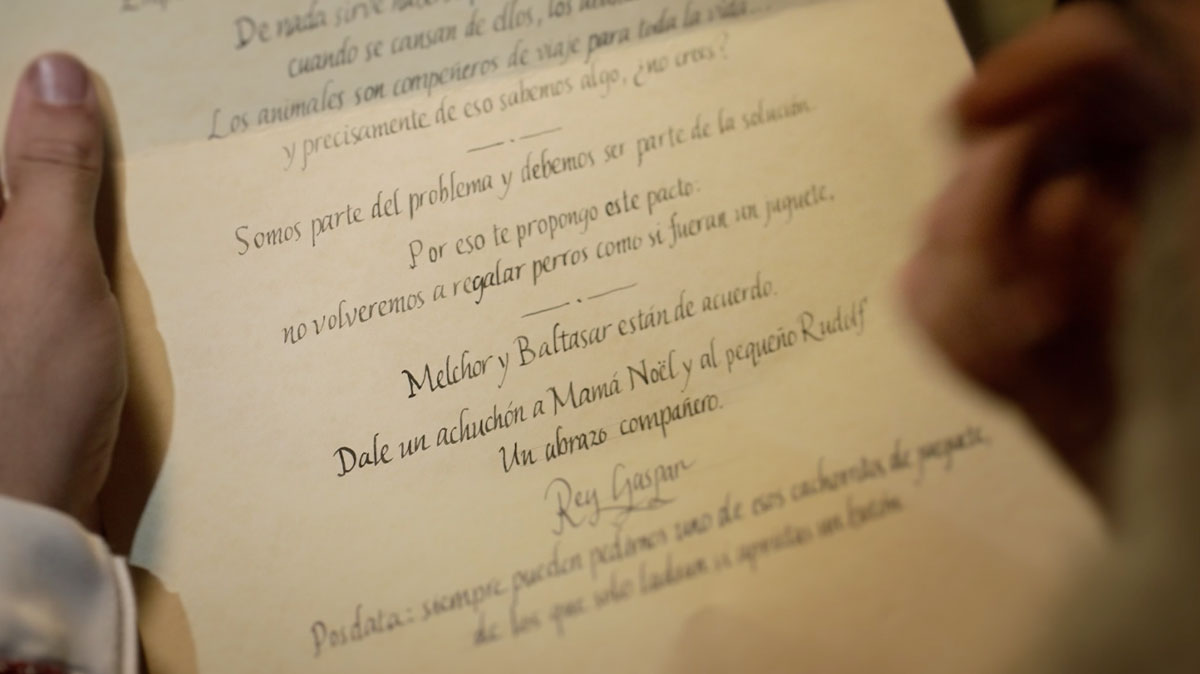 De nada sirve
cuando se cansan de ellos, los
Los animales son compeñeros de viaje para toda la vida...
y precisamente de eso sabemos algo, ¿no crees?
Somos parte del problema y debemos ser parte de la solución.
Por eso te propongo este pacto:
no volveremos a regalar perros como si fueran un juguete.
Melchor y Baltasar están de acuerdo.
Dale un achuchón a Mamá Noël y al pequeño Rudolf
Un abrazo compañero.
Rey Gaspar
Posdata: siempre pueden pedirnos uno de esos cachorritos de juguete,
de los que solo ladran si aprietas un botón.